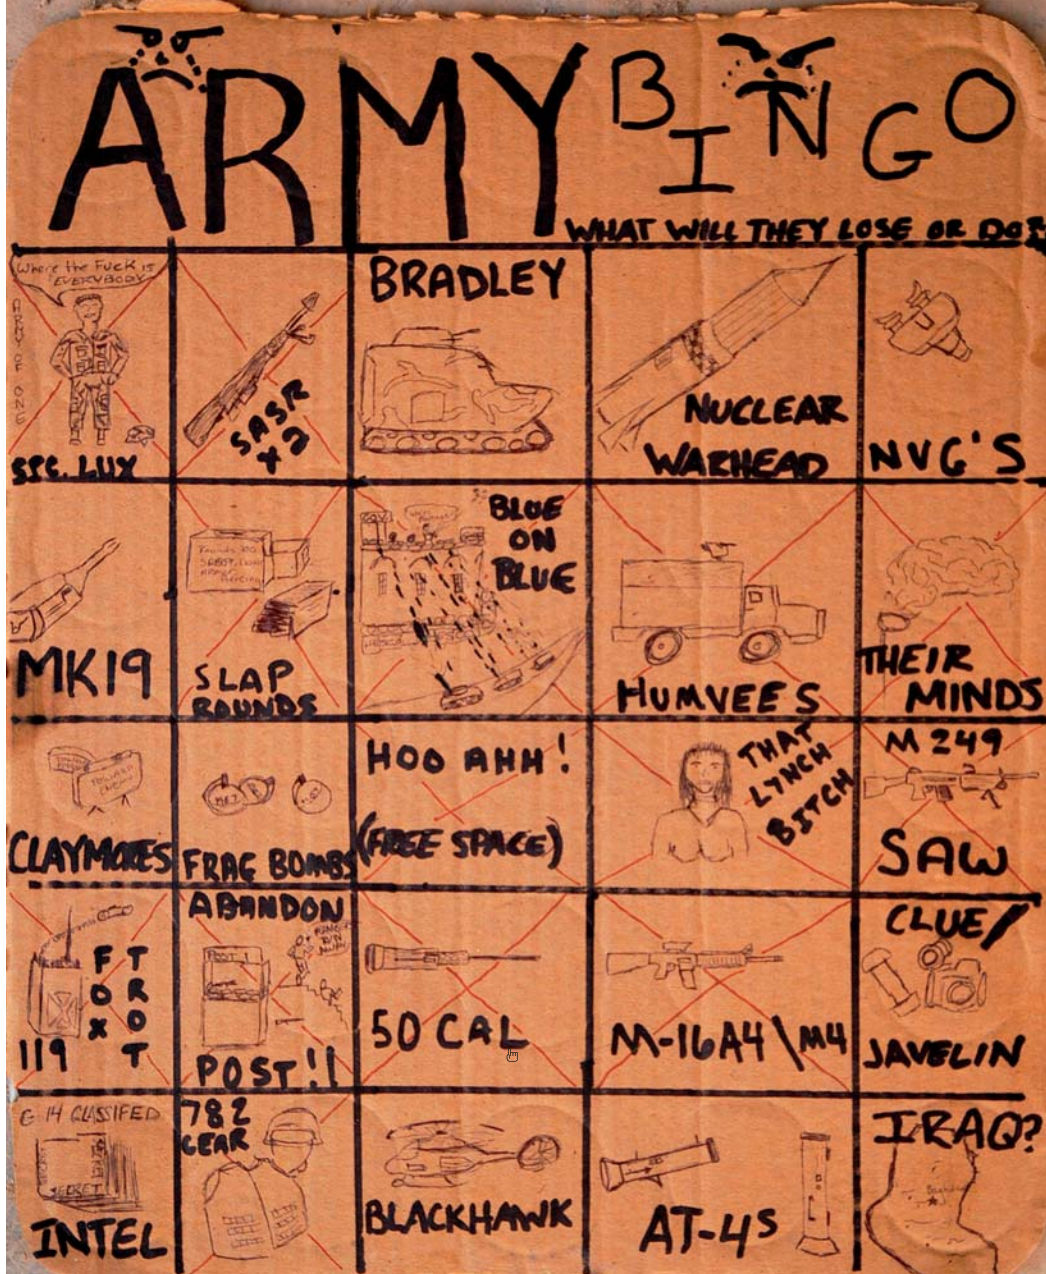 ARMY BINGO
WHAT WILL THEY LOSE OR DO?
Where the Fuck is
EVERYBODY
ARMY OF ONE
SPC. LUX
SASR
x2
BRADLEY
NUCLEAR
WARHEAD
NVG'S
MK19
SLAP
ROUNDS
BLUE
ON
BLUE
HUMVEES
THEIR
MINDS
CLAYMORES
FRAG BOMBS
HOO AHH!
(FREE SPACE)
THAT
LYNCH
BITCH
M249
SAW
119
FOX
TROT
ABANDON
POST 1
RUN
AWAY
POST!!
50 CAL
M-16A4\M4
CLUE/
JAVELIN
G 14 CLASSIFED
SECRET
INTEL
782
GEAR
BLACKHAWK
AT-4S
IRAQ?